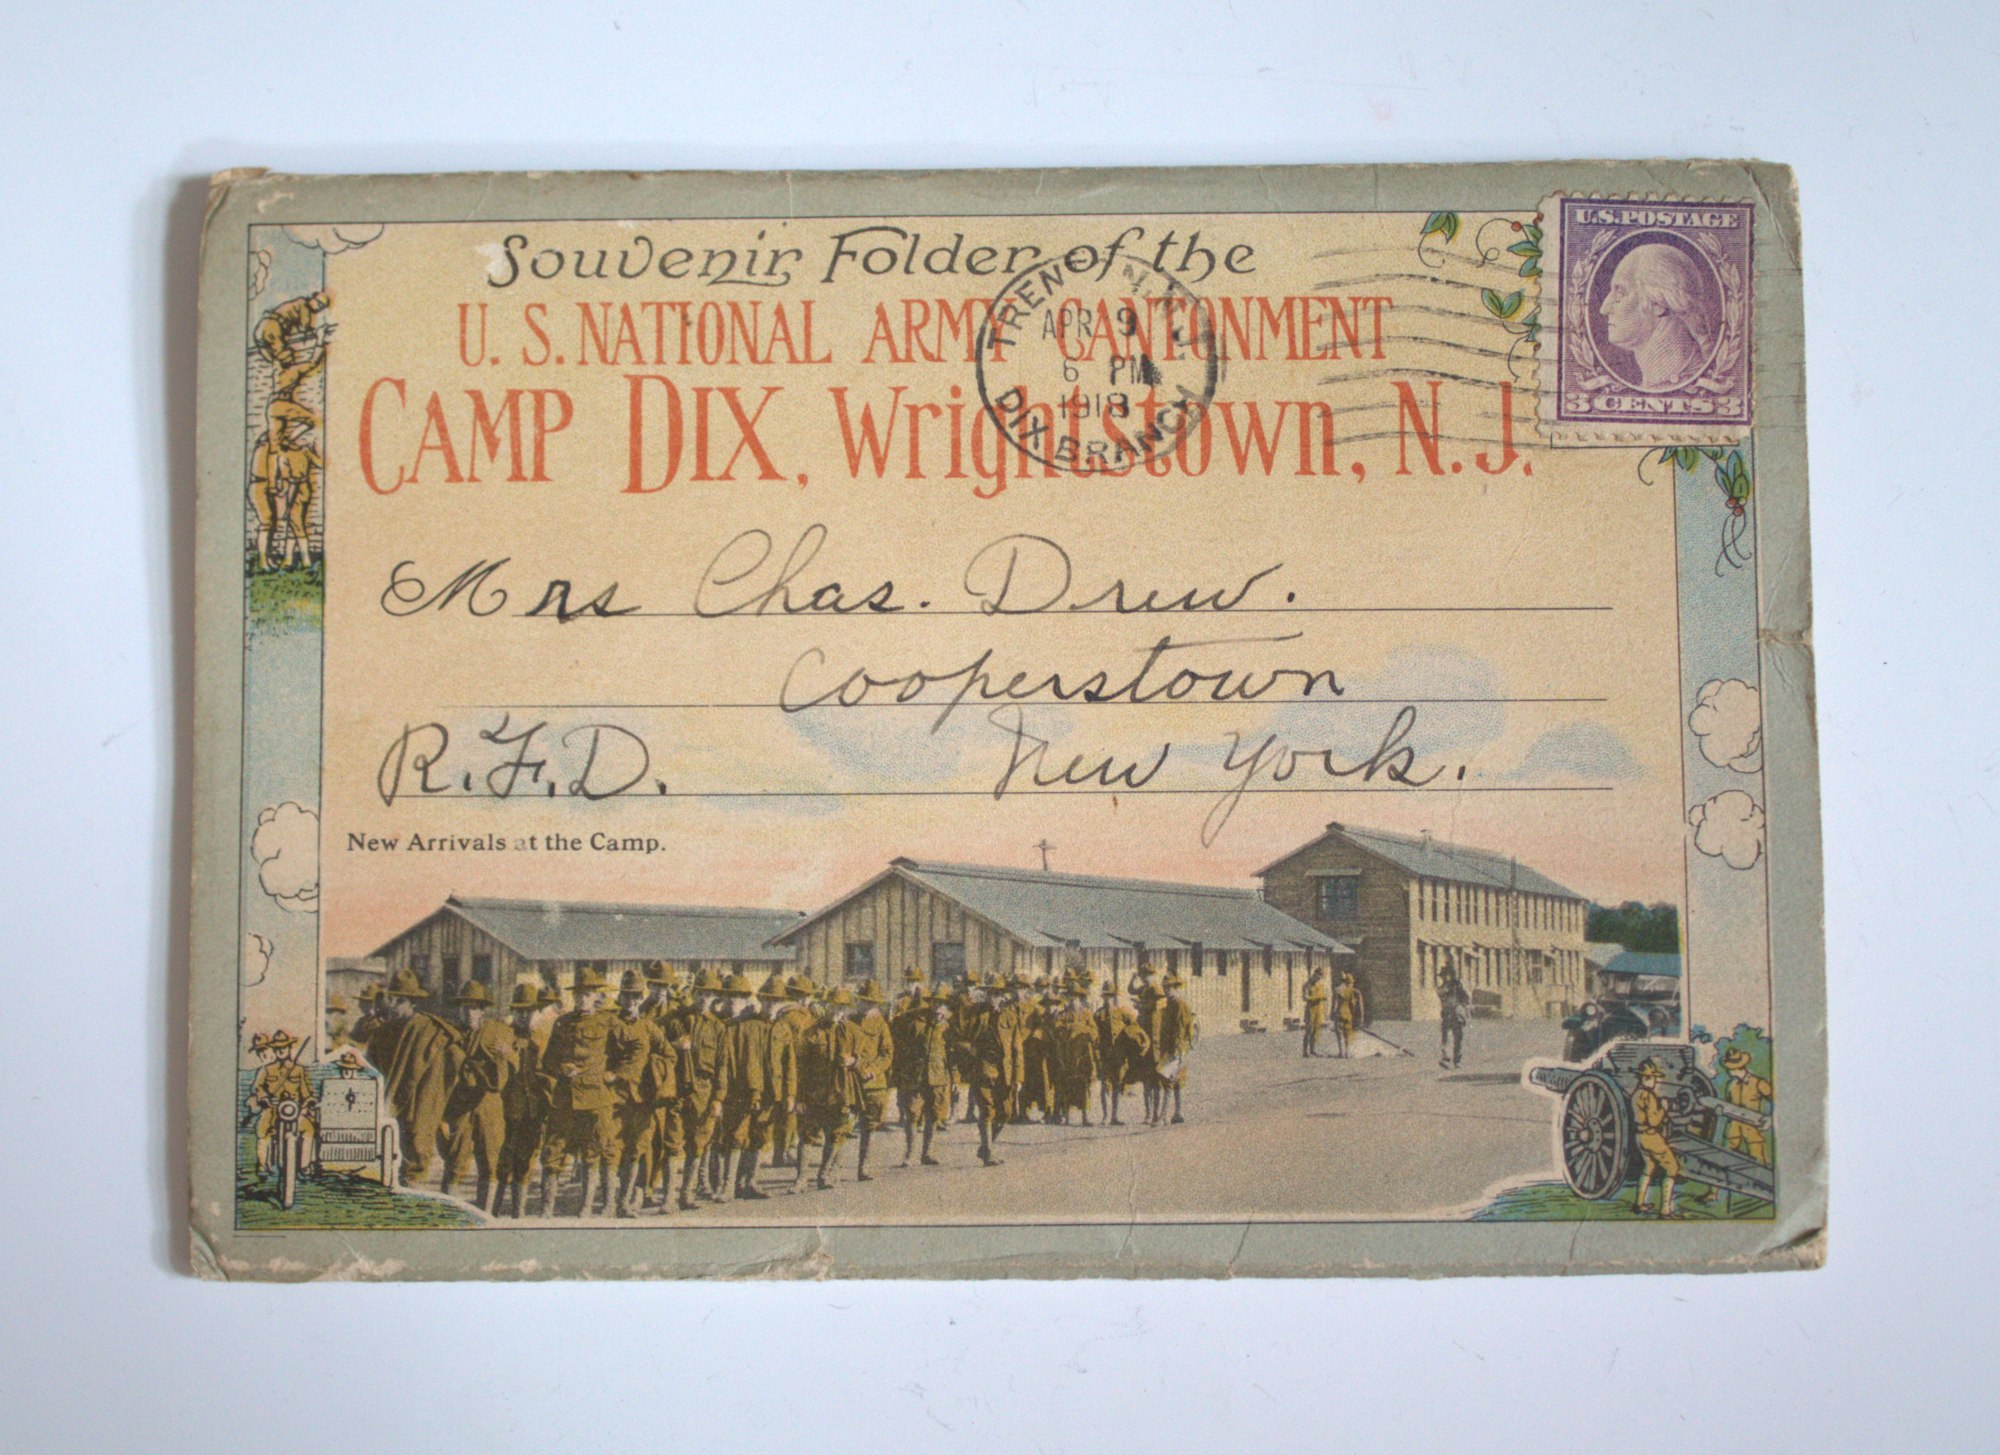 Souvenir Folder of the
U. S. NATIONAL ARMY CANTONMENT
CAMP DIX, Wrightstown, N. J.
TRENTON, N. J.
APR 9
6 PM
1918
DIX BRANCH
U.S. POSTAGE
3 CENTS 3
Mrs Chas. Drew.
Cooperstown
R.F.D. New York.
New Arrivals at the Camp.